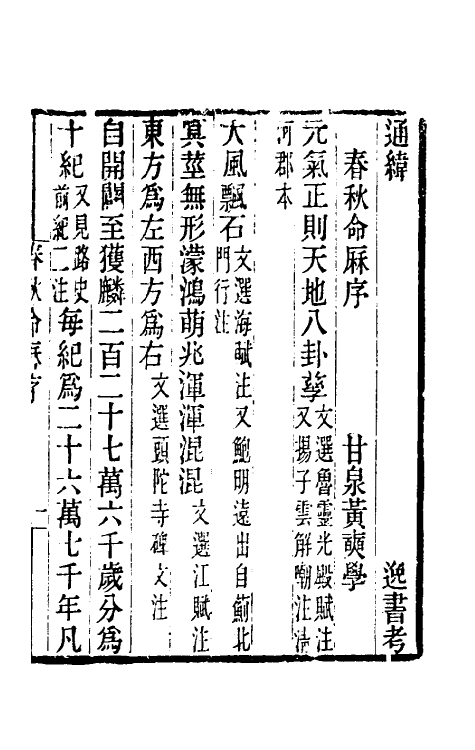 通緯　逸書考
春秋命厤序　甘泉黃奭學
元氣正則天地八卦孳文選魯靈光殿賦注又揚子雲解嘲注淸
河郡本
大風飄石文選海賦注又鮑明遠出自薊北門行注
冥莖無形濛鴻萌兆渾渾混混文選江賦注
東方爲左西方爲右文選頭陀寺碑文注
自開闢至獲麟二百二十七萬六千歲分爲
十紀又見路史前紀二注每紀爲二十六萬七千年凡
春秋命厤序　一